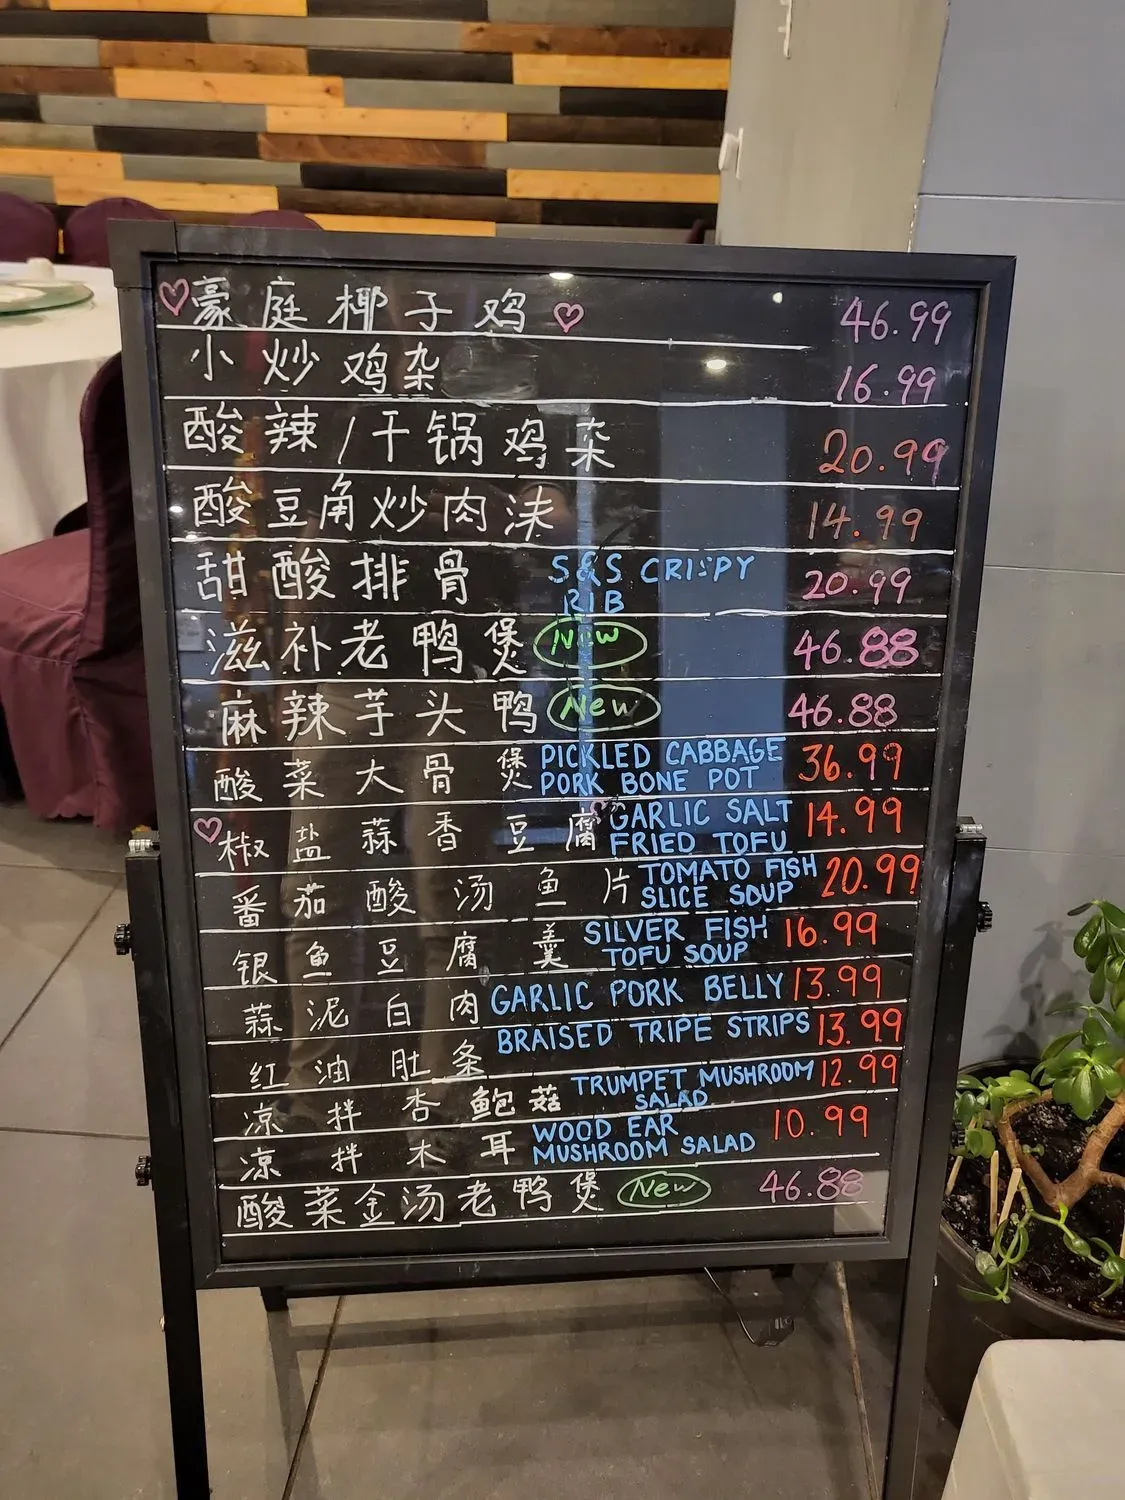 ♡豪庭椰子鸡♡ 46.99
小炒鸡杂 16.99
酸辣/干锅鸡杂 20.99
酸豆角炒肉沫 14.99
甜酸排骨 S&S CRISPY RIB 20.99
滋补老鸭煲 New 46.88
麻辣芋头鸭 New 46.88
酸菜大骨煲 PICKLED CABBAGE PORK BONE POT 36.99
♡椒盐蒜香豆腐♡ GARLIC SALT FRIED TOFU 14.99
番茄酸汤鱼片 TOMATO FISH SLICE SOUP 20.99
银鱼豆腐羹 SILVER FISH TOFU SOUP 16.99
蒜泥白肉 GARLIC PORK BELLY 13.99
红油肚条 BRAISED TRIPE STRIPS 13.99
凉拌杏鲍菇 TRUMPET MUSHROOM SALAD 12.99
凉拌木耳 WOOD EAR MUSHROOM SALAD 10.99
酸菜金汤老鸭煲 New 46.88